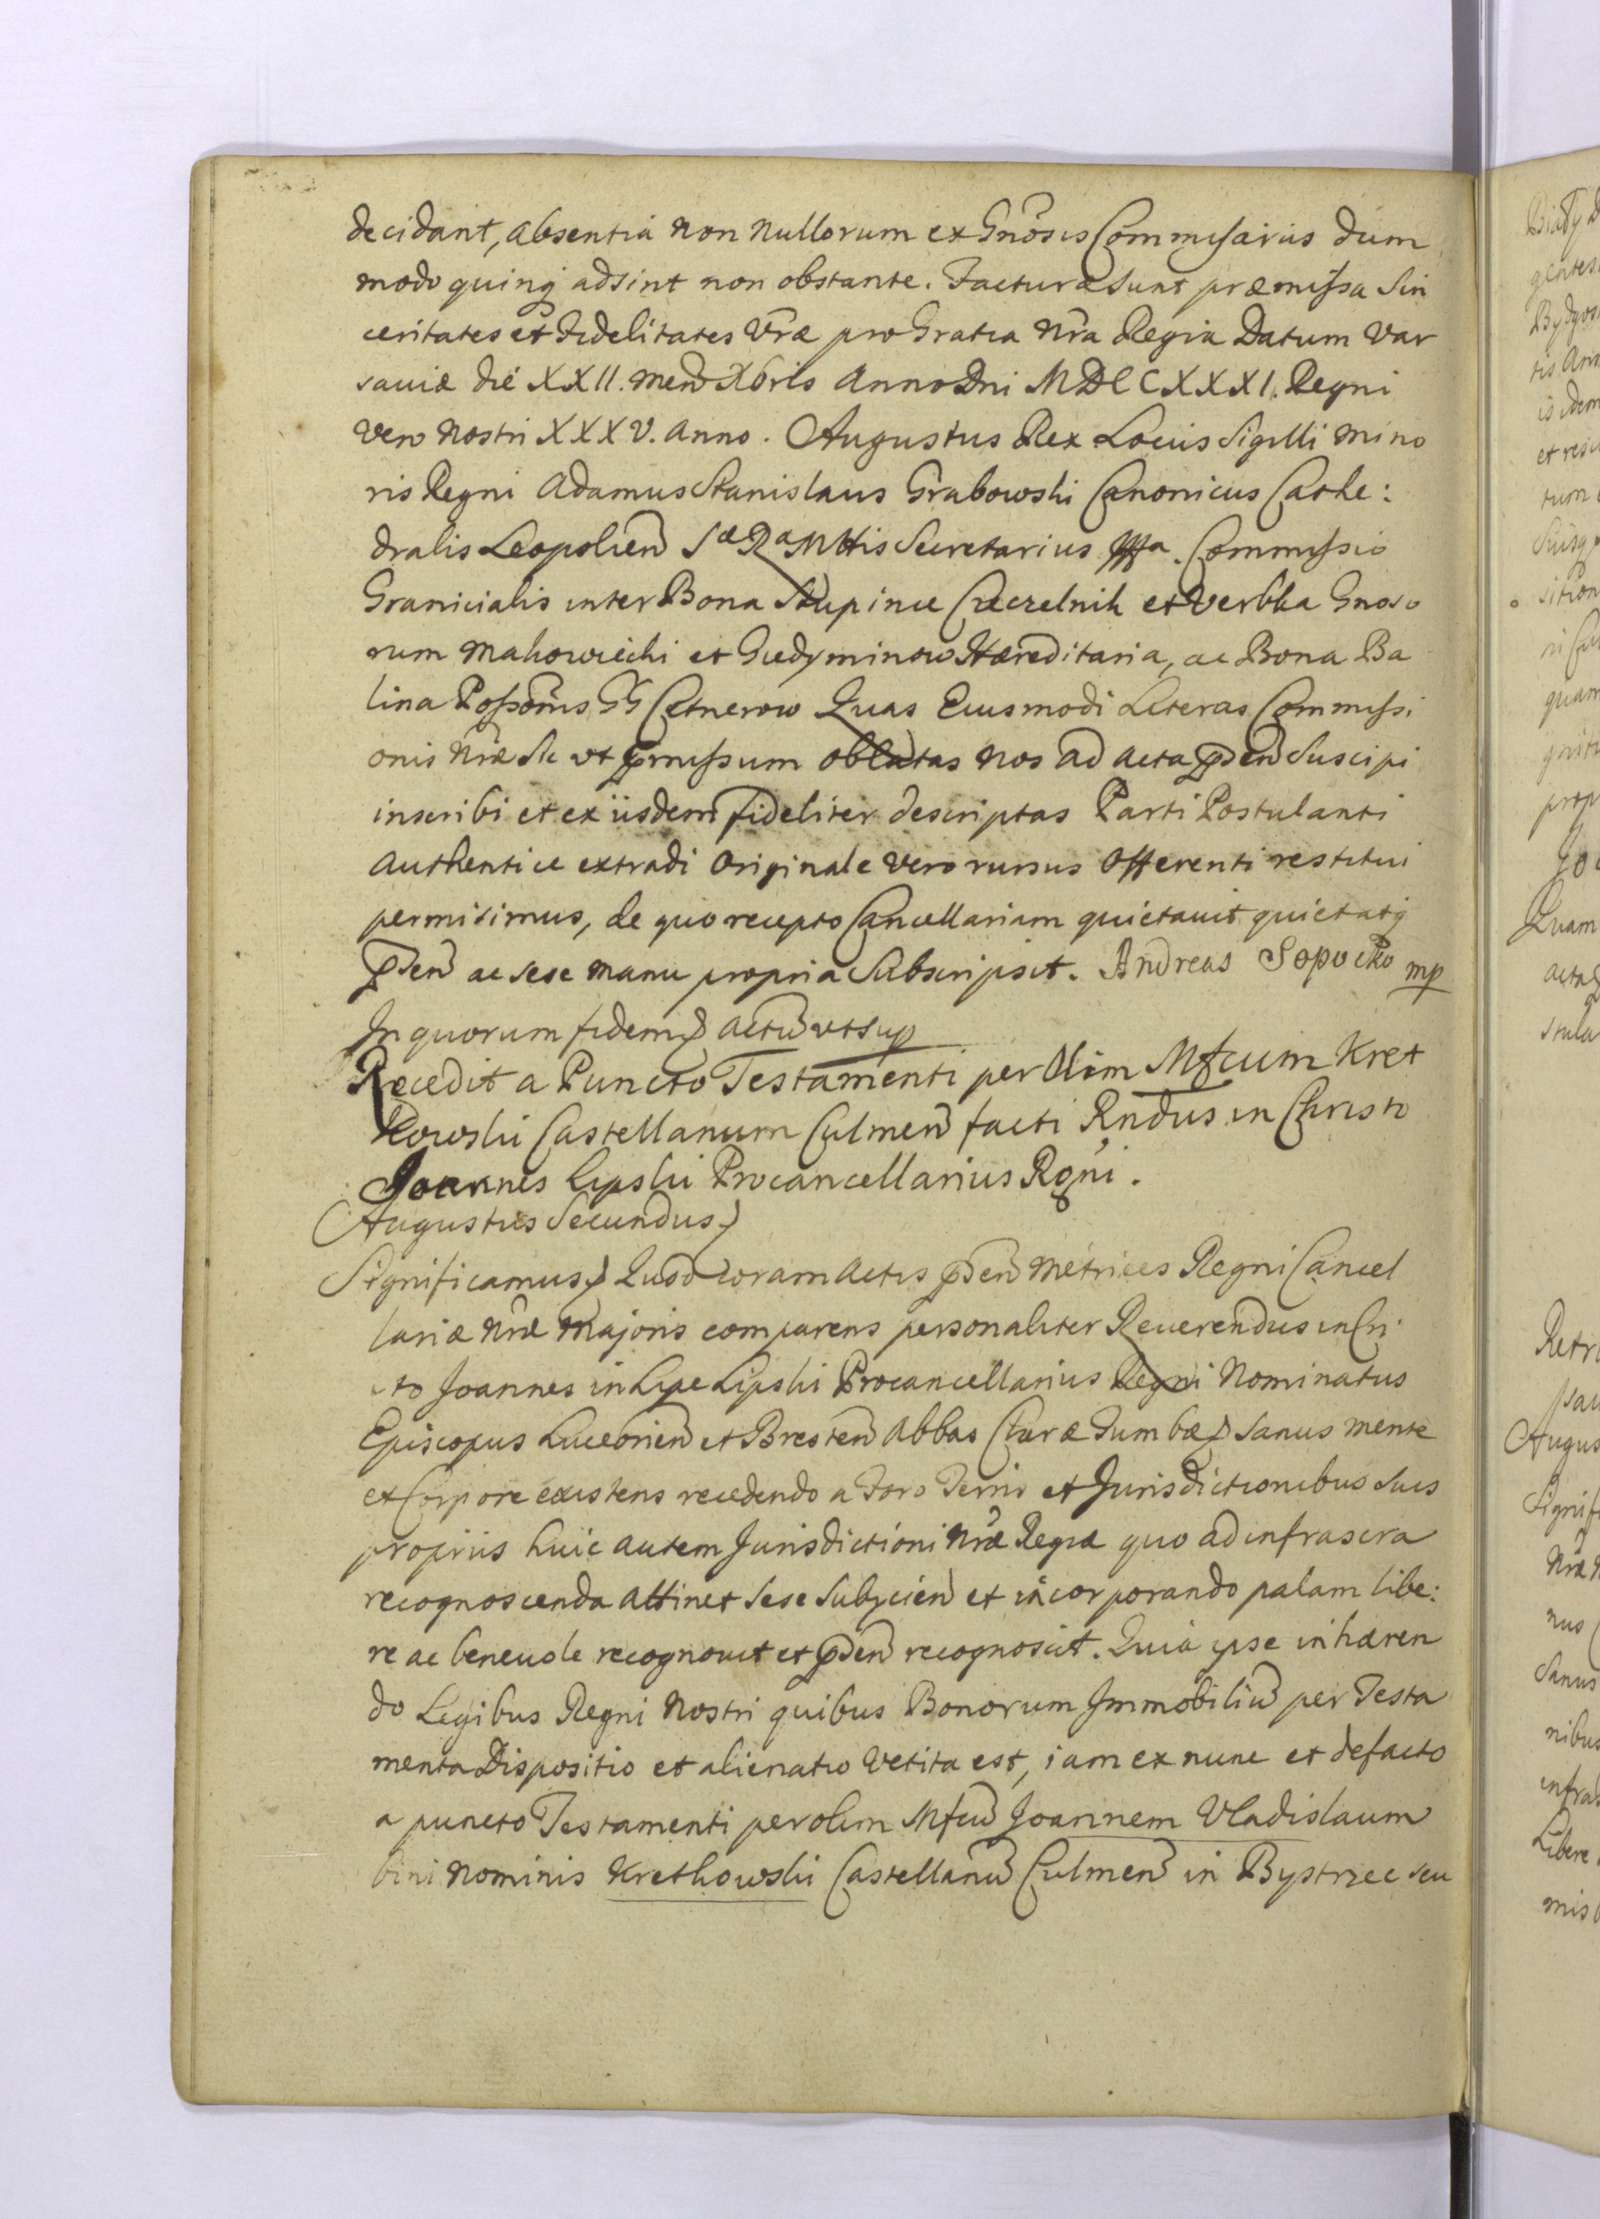 decidant, absentia non nullorum ex Gnosis Commissariis dum
modo quinq adsint non obstante. Facturæ sunt præmissa Sin
ceritates et Fidelitates Vræ pro Gratia Nra Regia Datum Var
saviæ die XXII. Men Xbris Anno Dni MDCCXXXI. Regni
Vero Nostri XXXV. Anno. Augustus Rex Locus Sigilli Mino
ris Regni Adamus Stanislaus Grabowski Canonicus Cathe:
dralis Leopolien Sæ Ra Mttis Secretarius Commissio
Granicialis inter Bona Slupince Czeczelnik et Verbka Gnoso
rum Makowiecki et Giedyminow Hæreditaria, ac Bona Ba
lina Possonis GG Cetnerow Quas Eiusmodi Literas Commissi
onis Nræ Sic ut pmissum oblatas Nos ad Acta psen Suscipi
inscribi et ex iisdem fideliter descriptas Parti Postulanti
Authentice extradi Originale vero rursus Offerenti restitui
permisimus, de quo recepto Cancellariam quietavit quietatq
psen ac sese manu propria Subscripsit. Andreas Sopocko mp
In quorum fidem Actu ut Sup
Recedit a Puncto Testamenti per Olim Mfcum Kret
kowski Castellanum Culmen facti Rndus in Christo
Joannes Lipski Procancellarius Rgni.
Augustus Secundus
Significamus Quod coram Actis psen Metrices Regni Cancel
lariæ Nræ Majoris comparens personaliter Reverendus in Chri
sto Joannes in Lipe Lipski Procancellarius Regni Nominatus
Episcopus Luceorien et Bresten Abbas Claræ Tumbæ Sanus mente
et Corpore existens recedendo a Foro Terrio et Jurisdictionibus Suis
propriis huic autem Jurisdictioni Nræ Regiæ quo ad infrascra
recognoscenda attinet Sese Subycien et incorporando palam libe:
re ac benevole recognovit et psen recognoscit. Quia ipse inhæren
do Legibus Regni Nostri quibus Bonorum Immobiliu per Testa
menta Dispositio et alienatio Vetita est, iam ex nunc et defacto
a puncto Testamenti per olim Mfcu Joannem Vladislaum
bini Nominis Krethowski Castellanu Culmen in Bystrzec seu